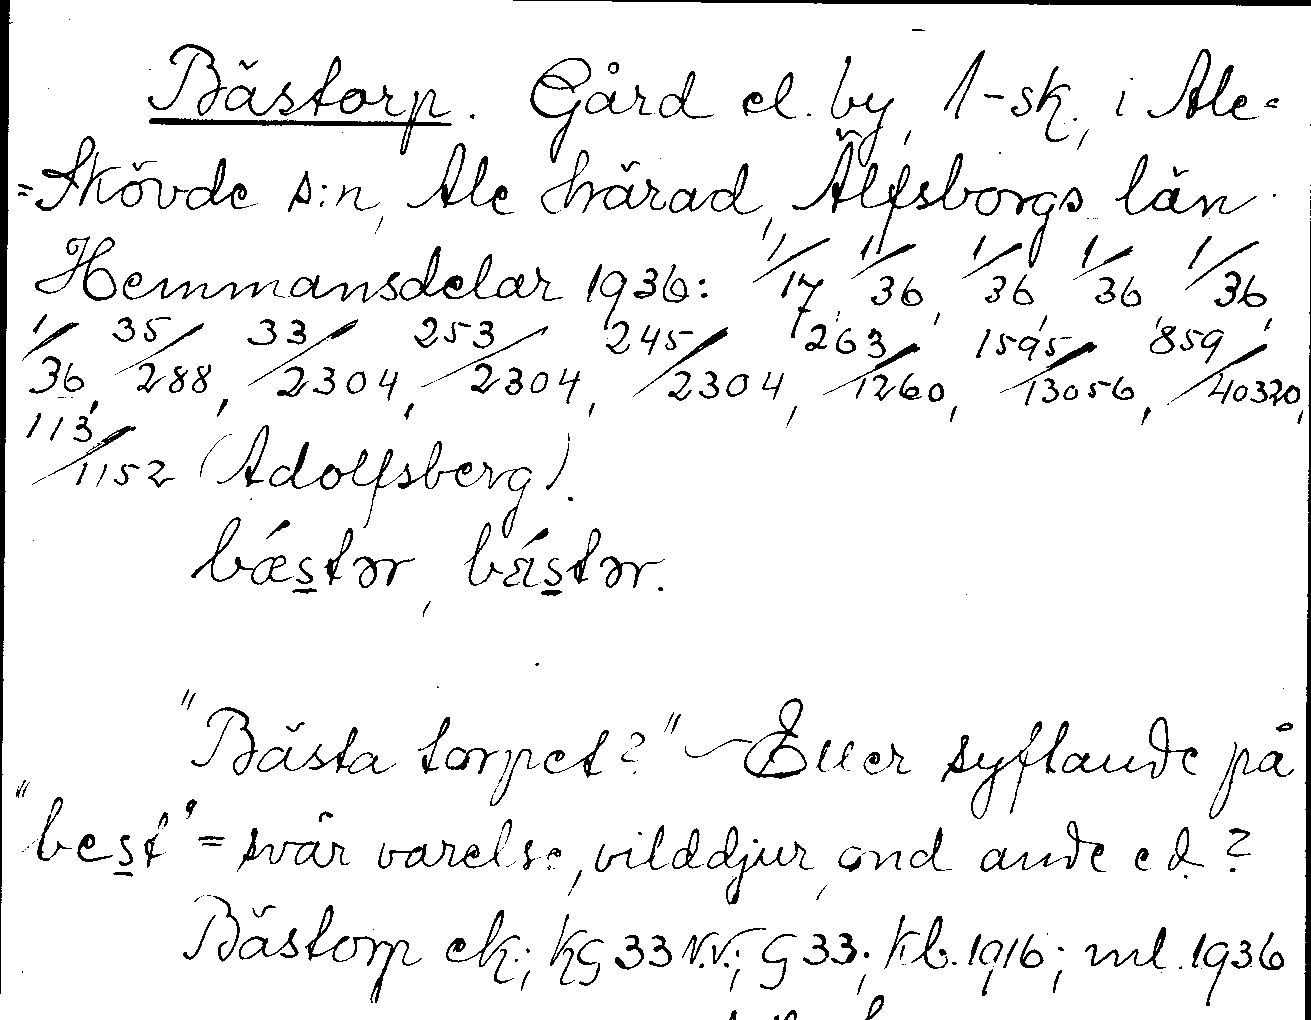 Bästorp. Gård el. by, 1-sk., i Ale-
=Skövde s:n, Ale härad, Älfsborgs län
Hemmansdelar 1936: 1/17, 1/36, 1/36, 1/36, 1/36,
1/36, 35/288, 33/2304, 253/2304, 245/2304, 263/1260, 1595/13056, 859/40320,
113/1152 (Adolfsberg).
bǽstər, bä́stər.
"Bästa torpet?" — Eller syftande på
"best" = svår varelse, vilddjur, ond ande ed.?
Bästorp ek.; KG 33 N.V.; G 33; Kb. 1916; ml. 1936